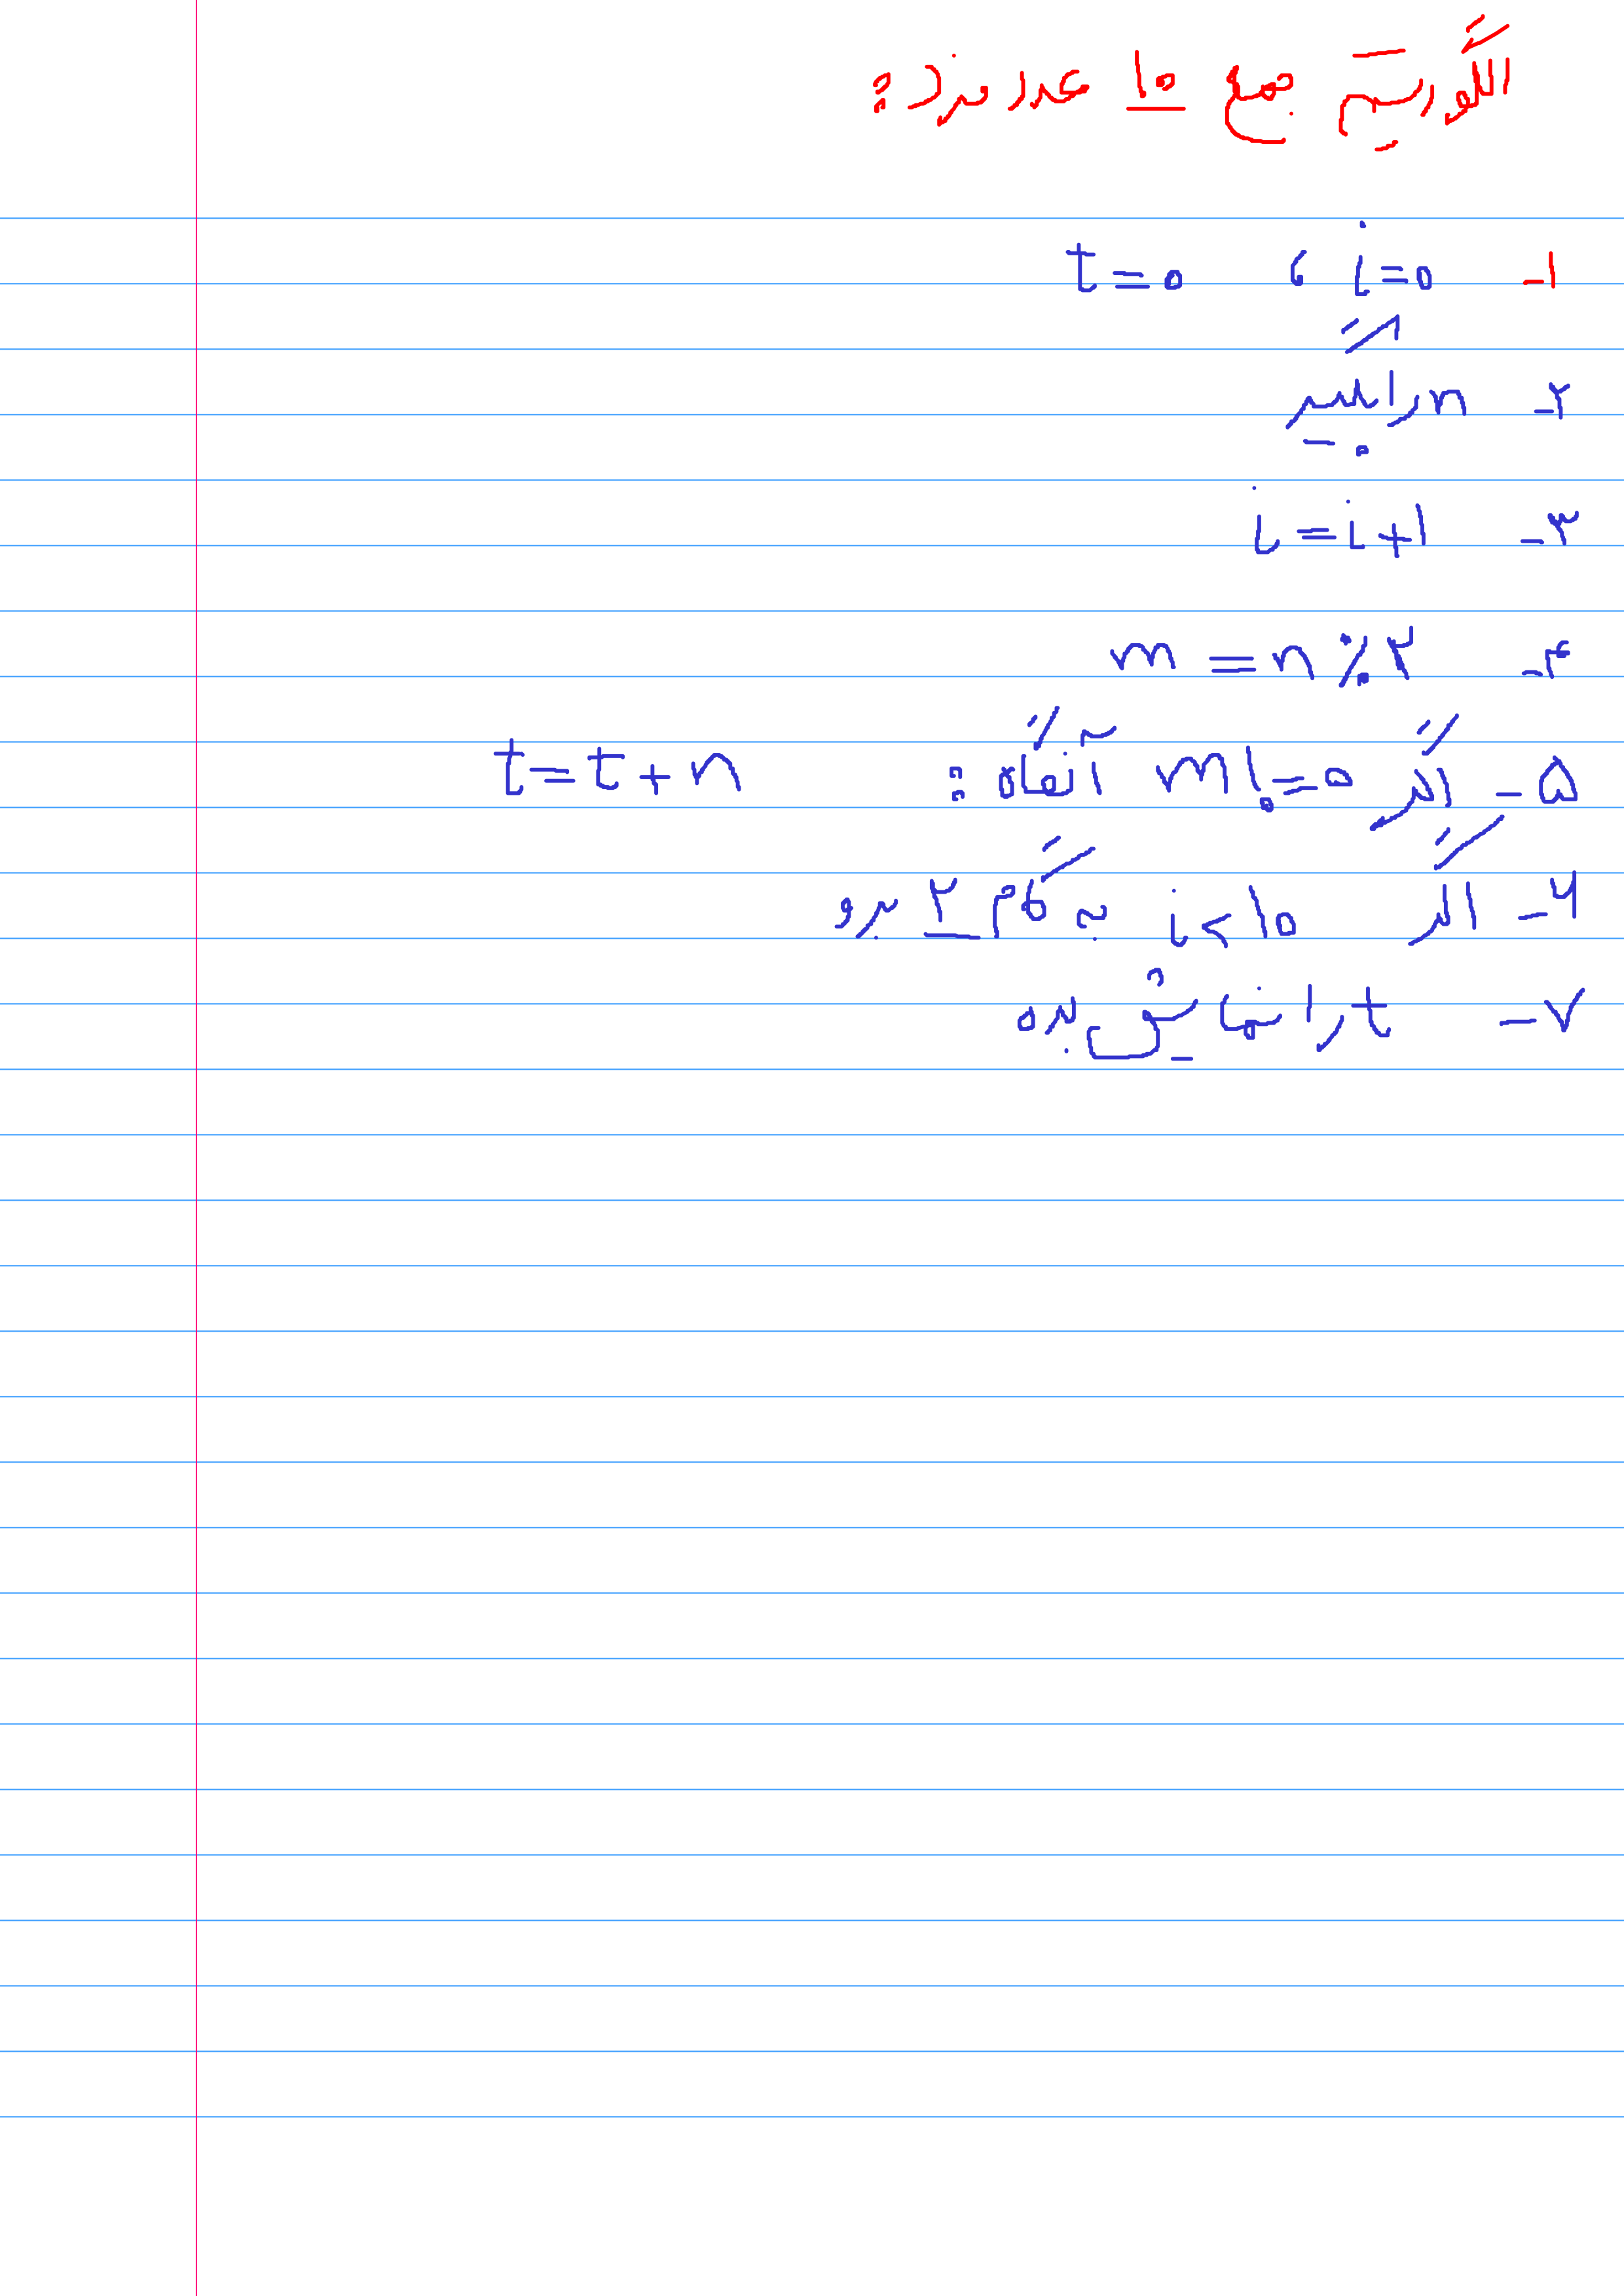 الگوریتم جمع ۱۰ عدد فرد :
۱- i=۰ ، t=۰
۲- n را بگیر
۳- i=i+۱
۴- m=n%۲
۵- اگر m!=۰ آنگاه : t=t+n
۶- اگر i<۱۰ به گام ۲ برو
۷- t را نمایش بده